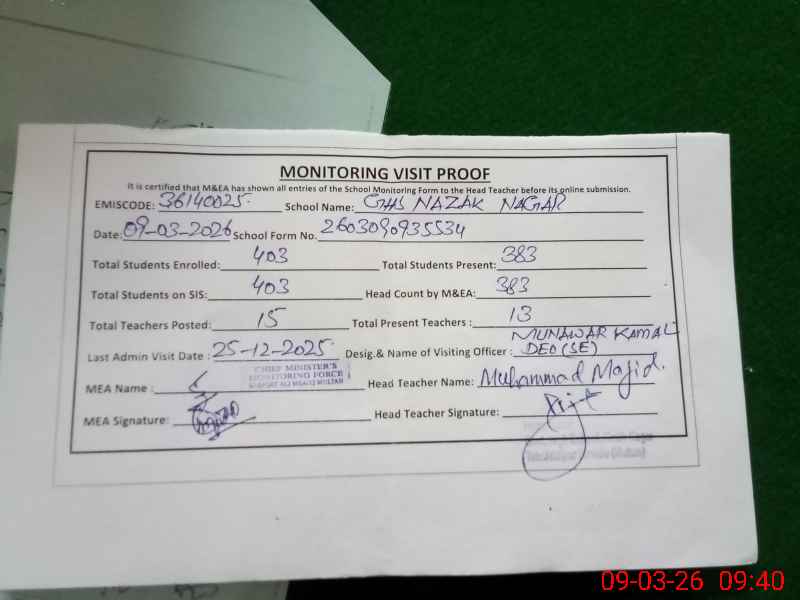 MONITORING VISIT PROOF
It is certified that M&EA has shown all entries of the School Monitoring Form to the Head Teacher before its online submission.
EMISCODE: 36140025. School Name: GHS NAZAK NAGAR
Date: 09-03-2026 School Form No. 2603090935534
Total Students Enrolled: 403 Total Students Present: 383
Total Students on SIS: 403 Head Count by M&EA: 383
Total Teachers Posted: 15 Total Present Teachers : 13
Last Admin Visit Date : 25-12-2025. Desig.& Name of Visiting Officer : MUNAWAR KAMAL DEO (SE)
MEA Name : Head Teacher Name: Muhammad Majid.
CHIEF MINISTER'S
MONITORING FORCE
MEA Signature: Head Teacher Signature:
09-03-26 09:40